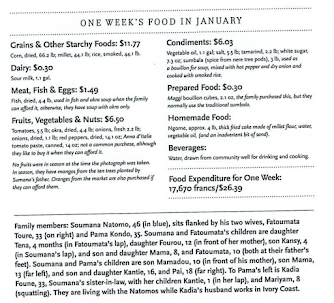 ONE WEEK'S FOOD IN JANUARY
Grains & Other Starchy Foods: $11.77
Corn, dried, 66.2 lb; millet, 44.1 lb; rice, smoked, 44.1 lb.
Dairy: $0.30
Sour milk, 1.1 gal.
Meat, Fish & Eggs: $1.49
Fish, dried, 4.4 lb, used in fish and okra soup when the family
can afford it, otherwise, they have soup with okra only.
Fruits, Vegetables & Nuts: $6.50
Tomatoes, 5.5 lb; okra, dried, 4.4 lb; onions, fresh 2.2 lb;
onions, dried, 1.1 lb; red peppers, dried, 14.1 oz; Anna d'Italie
tomato paste, canned, 14 oz; not a common purchase, although
they like to buy it when they can afford it.
No fruits were in season at the time the photograph was taken.
In season, they have mangos from the ten trees planted by
Soumana's father. Oranges from the market are also purchased if
they can afford them.
Condiments: $6.03
Vegetable oil, 1.1 gal; salt, 5.5 lb; tamarind, 2.2 lb; white sugar,
2.3 oz; sumbala (spice from nere tree pods), 3 lb, used as
a bouillon for soup, mixed with hot pepper and dry onion and
cooked with smoked rice.
Prepared Food: $0.30
Maggi bouillon cubes, 2.1 oz, the family purchased this, but they
normally use the traditional sumbala.
Homemade Food:
Ngome, approx. 4 lb, thick fried cake made of millet flour, water,
vegetable oil, (and an inadvertent bit of sand).
Beverages:
Water, drawn from community well for drinking and cooking.
Food Expenditure for One Week:
17,670 francs/$26.39
Family members: Soumana Natomo, 46 (in blue), sits flanked by his two wives, Fatoumata
Toure, 33 (on right) and Pama Kondo, 35. Soumana and Fatoumata's children are daughter
Tena, 4 months (in Fatoumata's lap), daughter Fourou, 12 (in front of her mother), son Kansy, 4
(in Soumana's lap), and son and daughter Mama, 8, and Fatoumata, 10 (both at their father's
feet). Soumana and Pama's children are son Mamadou, 10 (in front of his mother), son Mama,
13 (far left), and son and daughter Kantie, 16, and Pai, 18 (far right). To Pama's left is Kadia
Foune, 33, Soumana's sister-in-law, with her children Kantie, 1 (in her lap), and Mariyam, 8
(squatting). They are living with the Natomos while Kadia's husband works in Ivory Coast.